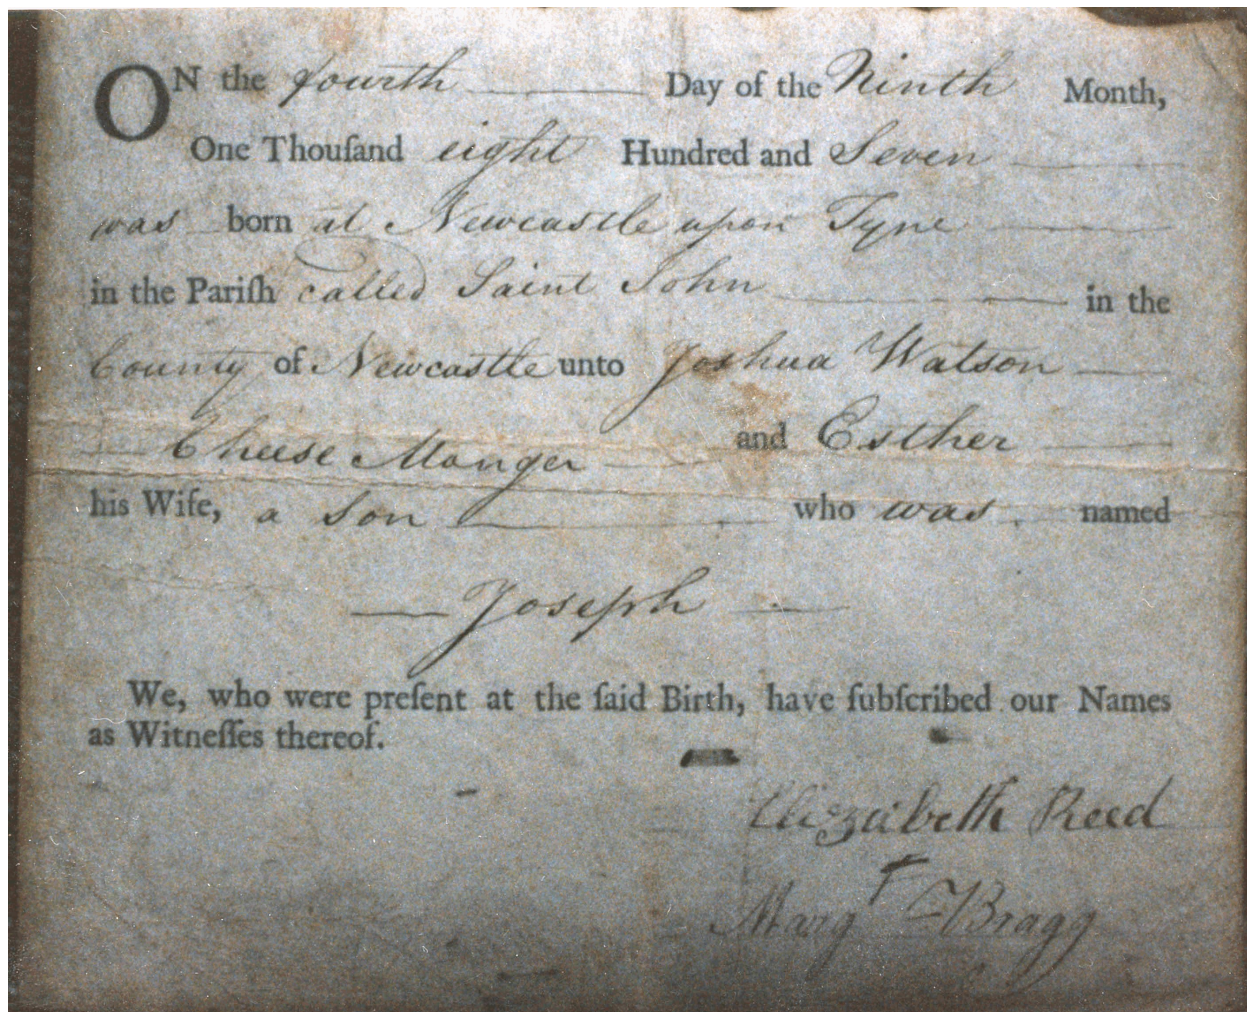 ON the fourth Day of the Ninth Month,
One Thouſand eight Hundred and Seven
was born at Newcastle upon Tyne
in the Pariſh called Saint John in the
County of Newcastle unto Joshua Watson
Cheese Monger and Esther
his Wife, a son who was named
Joseph
We, who were preſent at the ſaid Birth, have ſubſcribed our Names
as Witneſſes thereof.
Elizabeth Reed
Margt Bragg